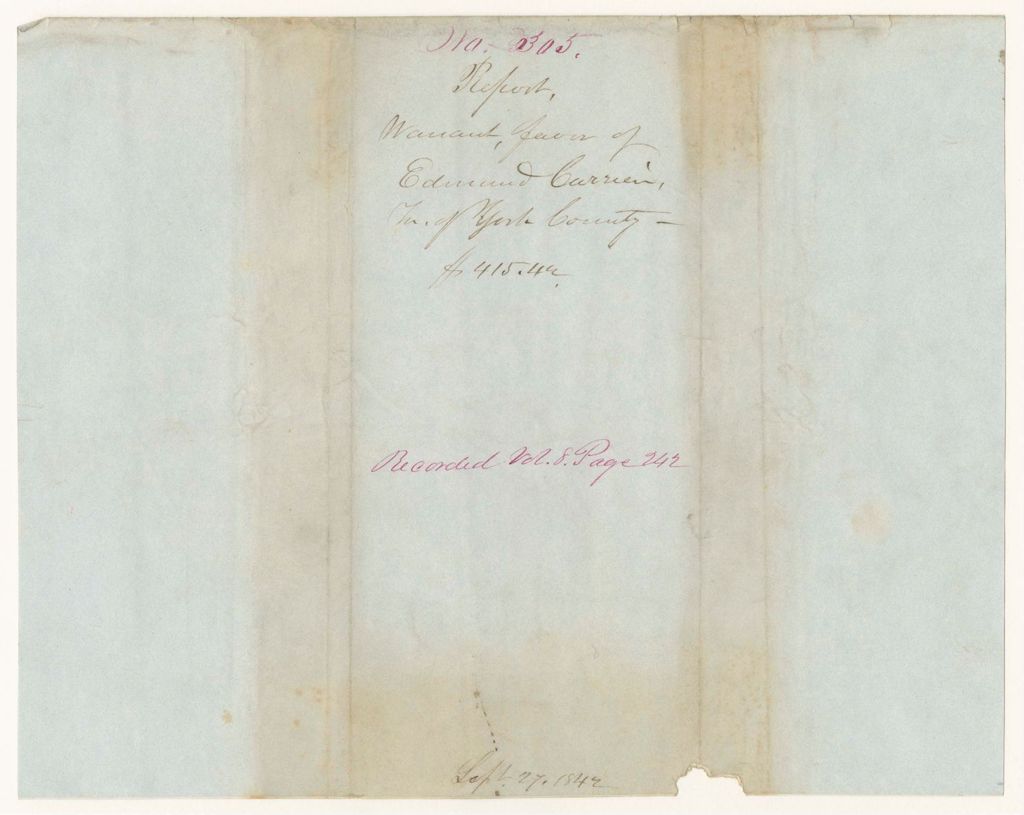 No. 305.
Report,
Warrant, favor of
Edmund Currier,
Tr. of York County –
$415.42
Recorded Vol. 8. Page 242
Sept. 27. 1842